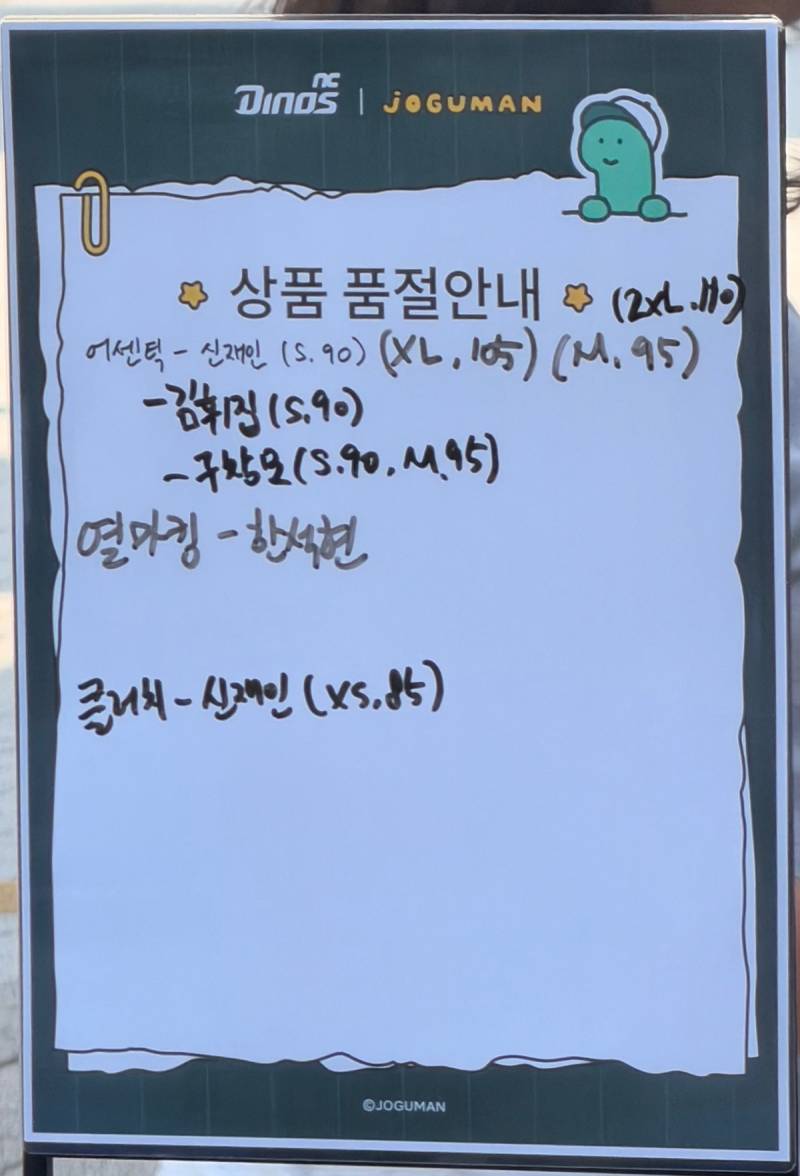 NC Dinos | JOGUMAN
상품 품절안내
(2XL.110)
어센틱 - 신재인 (S. 90) (XL. 105) (M. 95)
- 김휘집 (S.90)
- 구창모 (S.90. M.95)
열마킹 - 한석현
클러치 - 신재인 (XS.85)
©JOGUMAN